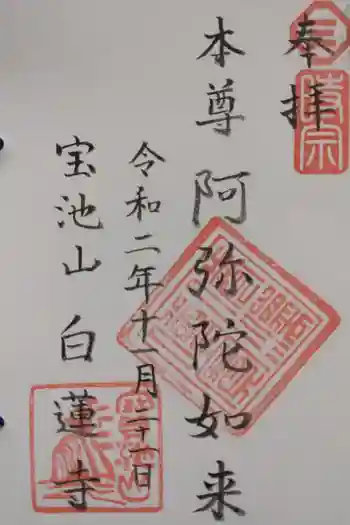 奉拝
本尊 阿弥陀如来
令和二年十一月二十一日
宝池山 白蓮寺